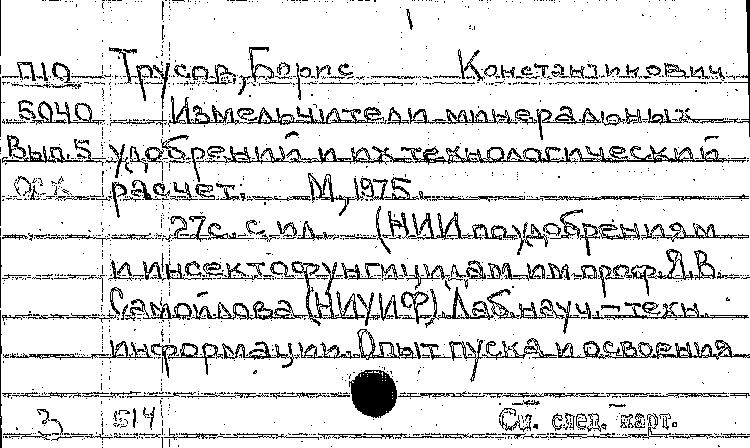 П10 Трусов, Борис Константинович
5040 Измельчители минеральных
Вып. 5 удобрений и их технологический
расчет. М., 1975.
27с. с ил. (НИИ по удобрениям
и инсектофунгицидам им. проф. Я. В.
Самойлова (НИУИФ). Лаб. науч.-техн.
информации. Опыт пуска и освоения
3 514 См. след. карт.